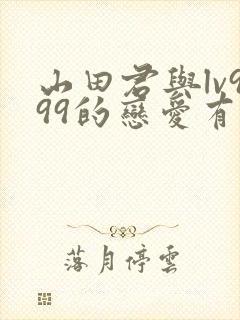 山田君與lv9
99的戀愛有
落月停雲